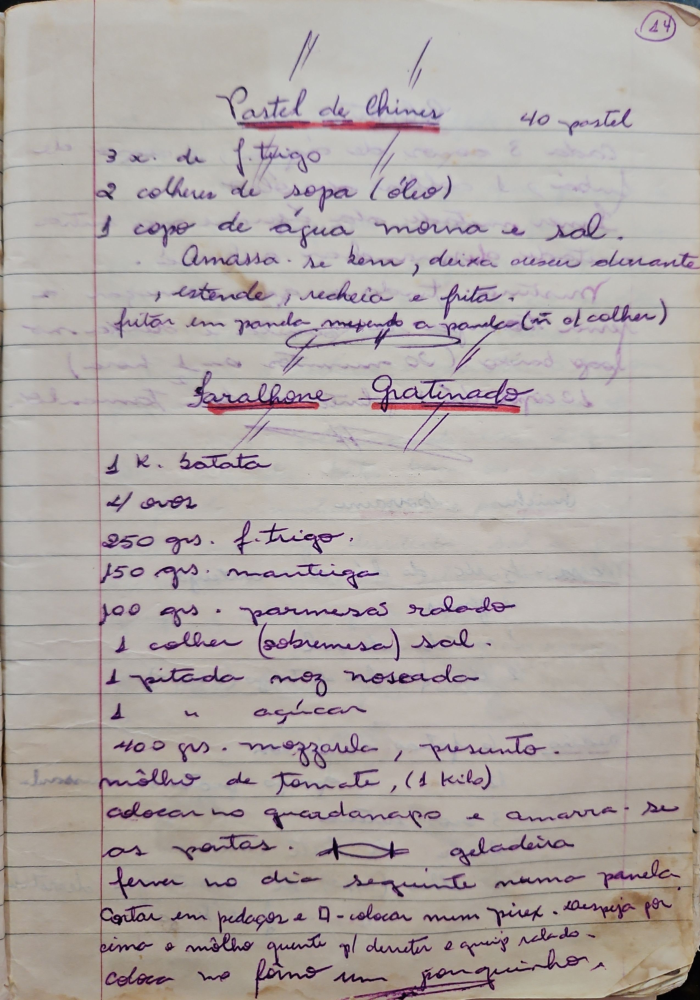 14
Pastel de Chines 40 pastel
3 x. de f. trigo
2 colheres de sopa (óleo)
1 copo de água morna e sal.
Amassa-se bem, deixa durante
, estende, recheia e frita.
fritar em panela mexendo a panela (ñ c/ colher)
Gratinado
1 K. batata
4 ovos
250 grs. f. trigo.
150 grs. manteiga
100 grs. parmesã ralado
1 colher (sobremesa) sal.
1 pitada noz noscada
1 " açúcar
400 grs. mozzarela, presunto.
môlho de tomate, (1 Kilo)
colocar no guardanapo e amarra-se
as pontas. geladeira
ferver no dia seguinte numa panela
Cortar em pedaços e colocar num pirex. despeja por
cima o môlho quente p/ derreter e queijo ralado.
coloca no fôrno um pouquinho.